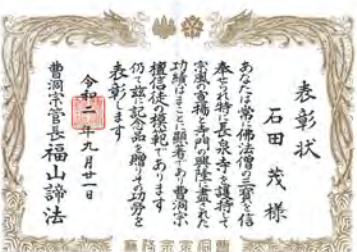 表彰状
石田茂様
あなたは常に佛法僧の三寳を信
奉され特に長泉寺を護持して
宗風の宣揚と寺門の興隆に盡された
功績はまことに顕著であり曹洞宗
檀信徒の模範であります
仍て茲に記念品を贈りその功労を
表彰します
令和二年九月廿一日
曹洞宗管長福山諦法